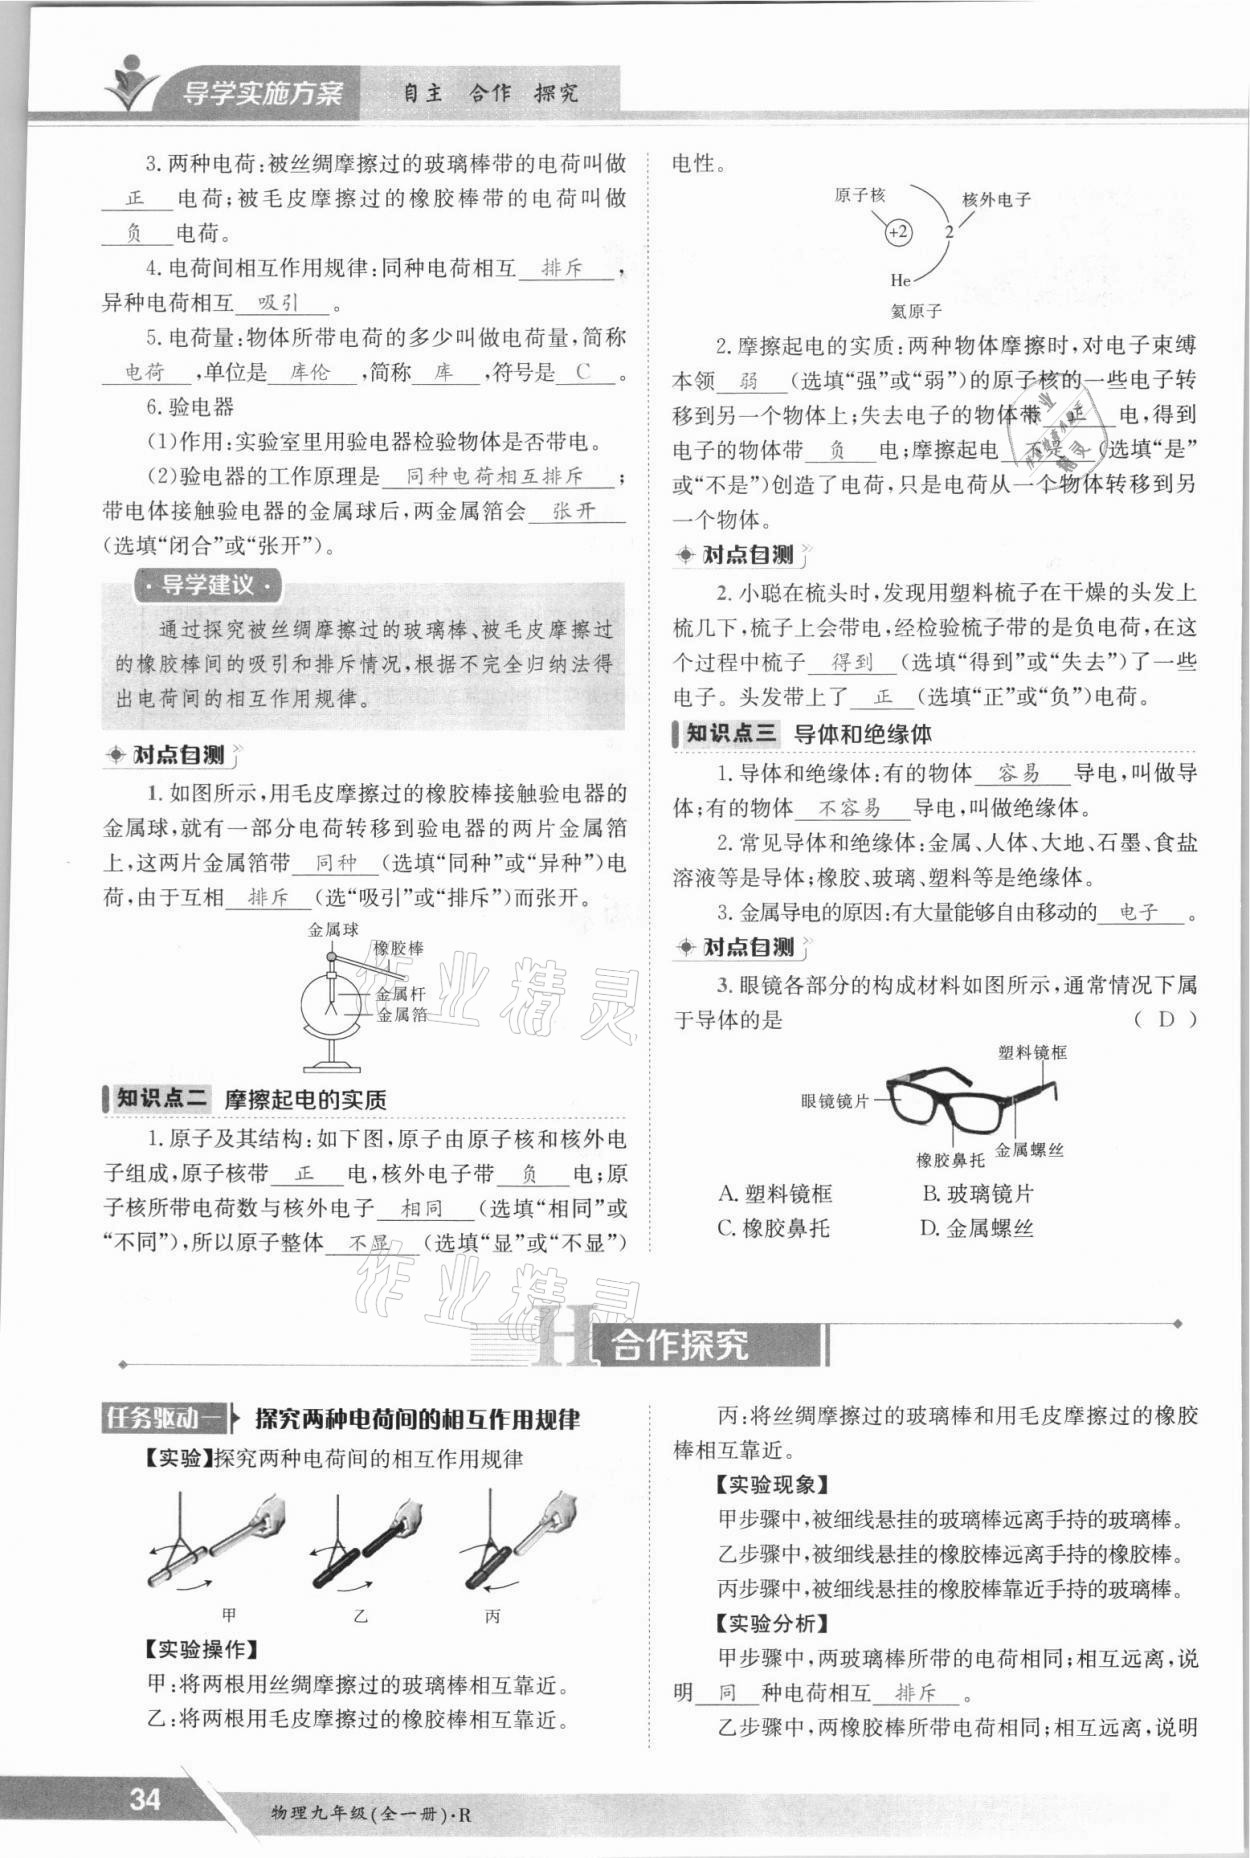 导学实施方案
自主 合作 探究
3.两种电荷:被丝绸摩擦过的玻璃棒带的电荷叫做
正 电荷;被毛皮摩擦过的橡胶棒带的电荷叫做
负 电荷。
4.电荷间相互作用规律:同种电荷相互 排斥 ,
异种电荷相互 吸引 。
5.电荷量:物体所带电荷的多少叫做电荷量,简称
电荷 ,单位是 库伦 ,简称 库 ,符号是 C 。
6.验电器
(1)作用:实验室里用验电器检验物体是否带电。
(2)验电器的工作原理是 同种电荷相互排斥 ;
带电体接触验电器的金属球后,两金属箔会 张开
(选填“闭合”或“张开”)。
·导学建议·
通过探究被丝绸摩擦过的玻璃棒、被毛皮摩擦过
的橡胶棒间的吸引和排斥情况,根据不完全归纳法得
出电荷间的相互作用规律。
对点自测
1.如图所示,用毛皮摩擦过的橡胶棒接触验电器的
金属球,就有一部分电荷转移到验电器的两片金属箔
上,这两片金属箔带 同种 (选填“同种”或“异种”)电
荷,由于互相 排斥 (选“吸引”或“排斥”)而张开。
金属球
橡胶棒
金属杆
金属箔
知识点二 摩擦起电的实质
1.原子及其结构:如下图,原子由原子核和核外电
子组成,原子核带 正 电,核外电子带 负 电;原
子核所带电荷数与核外电子 相同 (选填“相同”或
“不同”),所以原子整体 不显 (选填“显”或“不显”)
电性。
原子核
核外电子
+2
2
He
氦原子
2.摩擦起电的实质:两种物体摩擦时,对电子束缚
本领 弱 (选填“强”或“弱”)的原子核的一些电子转
移到另一个物体上;失去电子的物体带 正 电,得到
电子的物体带 负 电;摩擦起电 不是 (选填“是”
或“不是”)创造了电荷,只是电荷从一个物体转移到另
一个物体。
对点自测
2.小聪在梳头时,发现用塑料梳子在干燥的头发上
梳几下,梳子上会带电,经检验梳子带的是负电荷,在这
个过程中梳子 得到 (选填“得到”或“失去”)了一些
电子。头发带上了 正 (选填“正”或“负”)电荷。
知识点三 导体和绝缘体
1.导体和绝缘体:有的物体 容易 导电,叫做导
体;有的物体 不容易 导电,叫做绝缘体。
2.常见导体和绝缘体:金属、人体、大地、石墨、食盐
溶液等是导体;橡胶、玻璃、塑料等是绝缘体。
3.金属导电的原因:有大量能够自由移动的 电子 。
对点自测
3.眼镜各部分的构成材料如图所示,通常情况下属
于导体的是 ( D )
塑料镜框
眼镜镜片
橡胶鼻托
金属螺丝
A.塑料镜框 B.玻璃镜片
C.橡胶鼻托 D.金属螺丝
H 合作探究
任务驱动一 探究两种电荷间的相互作用规律
【实验】探究两种电荷间的相互作用规律
甲 乙 丙
【实验操作】
甲:将两根用丝绸摩擦过的玻璃棒相互靠近。
乙:将两根用毛皮摩擦过的橡胶棒相互靠近。
丙:将丝绸摩擦过的玻璃棒和用毛皮摩擦过的橡胶
棒相互靠近。
【实验现象】
甲步骤中,被细线悬挂的玻璃棒远离手持的玻璃棒。
乙步骤中,被细线悬挂的橡胶棒远离手持的橡胶棒。
丙步骤中,被细线悬挂的橡胶棒靠近手持的玻璃棒。
【实验分析】
甲步骤中,两玻璃棒所带的电荷相同;相互远离,说
明 同 种电荷相互 排斥 。
乙步骤中,两橡胶棒所带电荷相同;相互远离,说明
34
物理九年级(全一册)·R
作业精灵
作业精灵